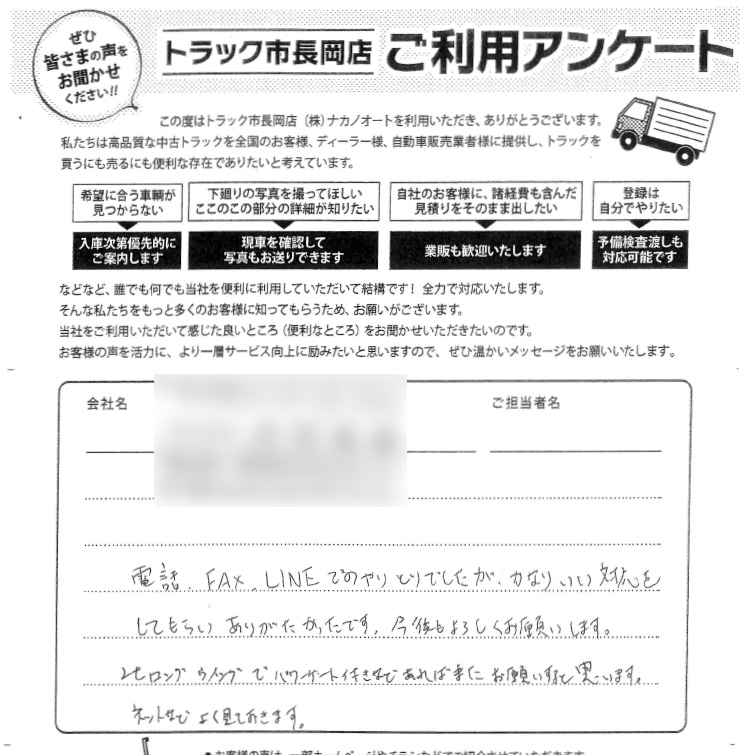 ぜひ
皆さまの声を
お聞かせ
ください!!
トラック市長岡店 ご利用アンケート
この度はトラック市長岡店（株）ナカノオートを利用いただき、ありがとうございます。
私たちは高品質な中古トラックを全国のお客様、ディーラー様、自動車販売業者様に提供し、トラックを
買うにも売るにも便利な存在でありたいと考えています。
希望に合う車輌が
見つからない
入庫次第優先的に
ご案内します
下廻りの写真を撮ってほしい
ここのこの部分の詳細が知りたい
現車を確認して
写真もお送りできます
自社のお客様に、諸経費も含んだ
見積りをそのまま出したい
業販も歓迎いたします
登録は
自分でやりたい
予備検査渡しも
対応可能です
などなど、誰でも何でも当社を便利に利用していただいて結構です！全力で対応いたします。
そんな私たちをもっと多くのお客様に知ってもらうため、お願いがございます。
当社をご利用いただいて感じた良いところ（便利なところ）をお聞かせいただきたいのです。
お客様の声を活力に、より一層サービス向上に励みたいと思いますので、ぜひ温かいメッセージをお願いいたします。
会社名 ご担当者名
電話、FAX、LINEでのやりとりでしたが、かなりいい対応を
してもらいありがたかったです。今後もよろしくお願いします。
2tロングウイングでパワーゲート付きなどあればまたお願いすると思います。
ネットなどよく見ておきます。
●お客様の声は、一部ホームページやチラシなどでご紹介させていただきます